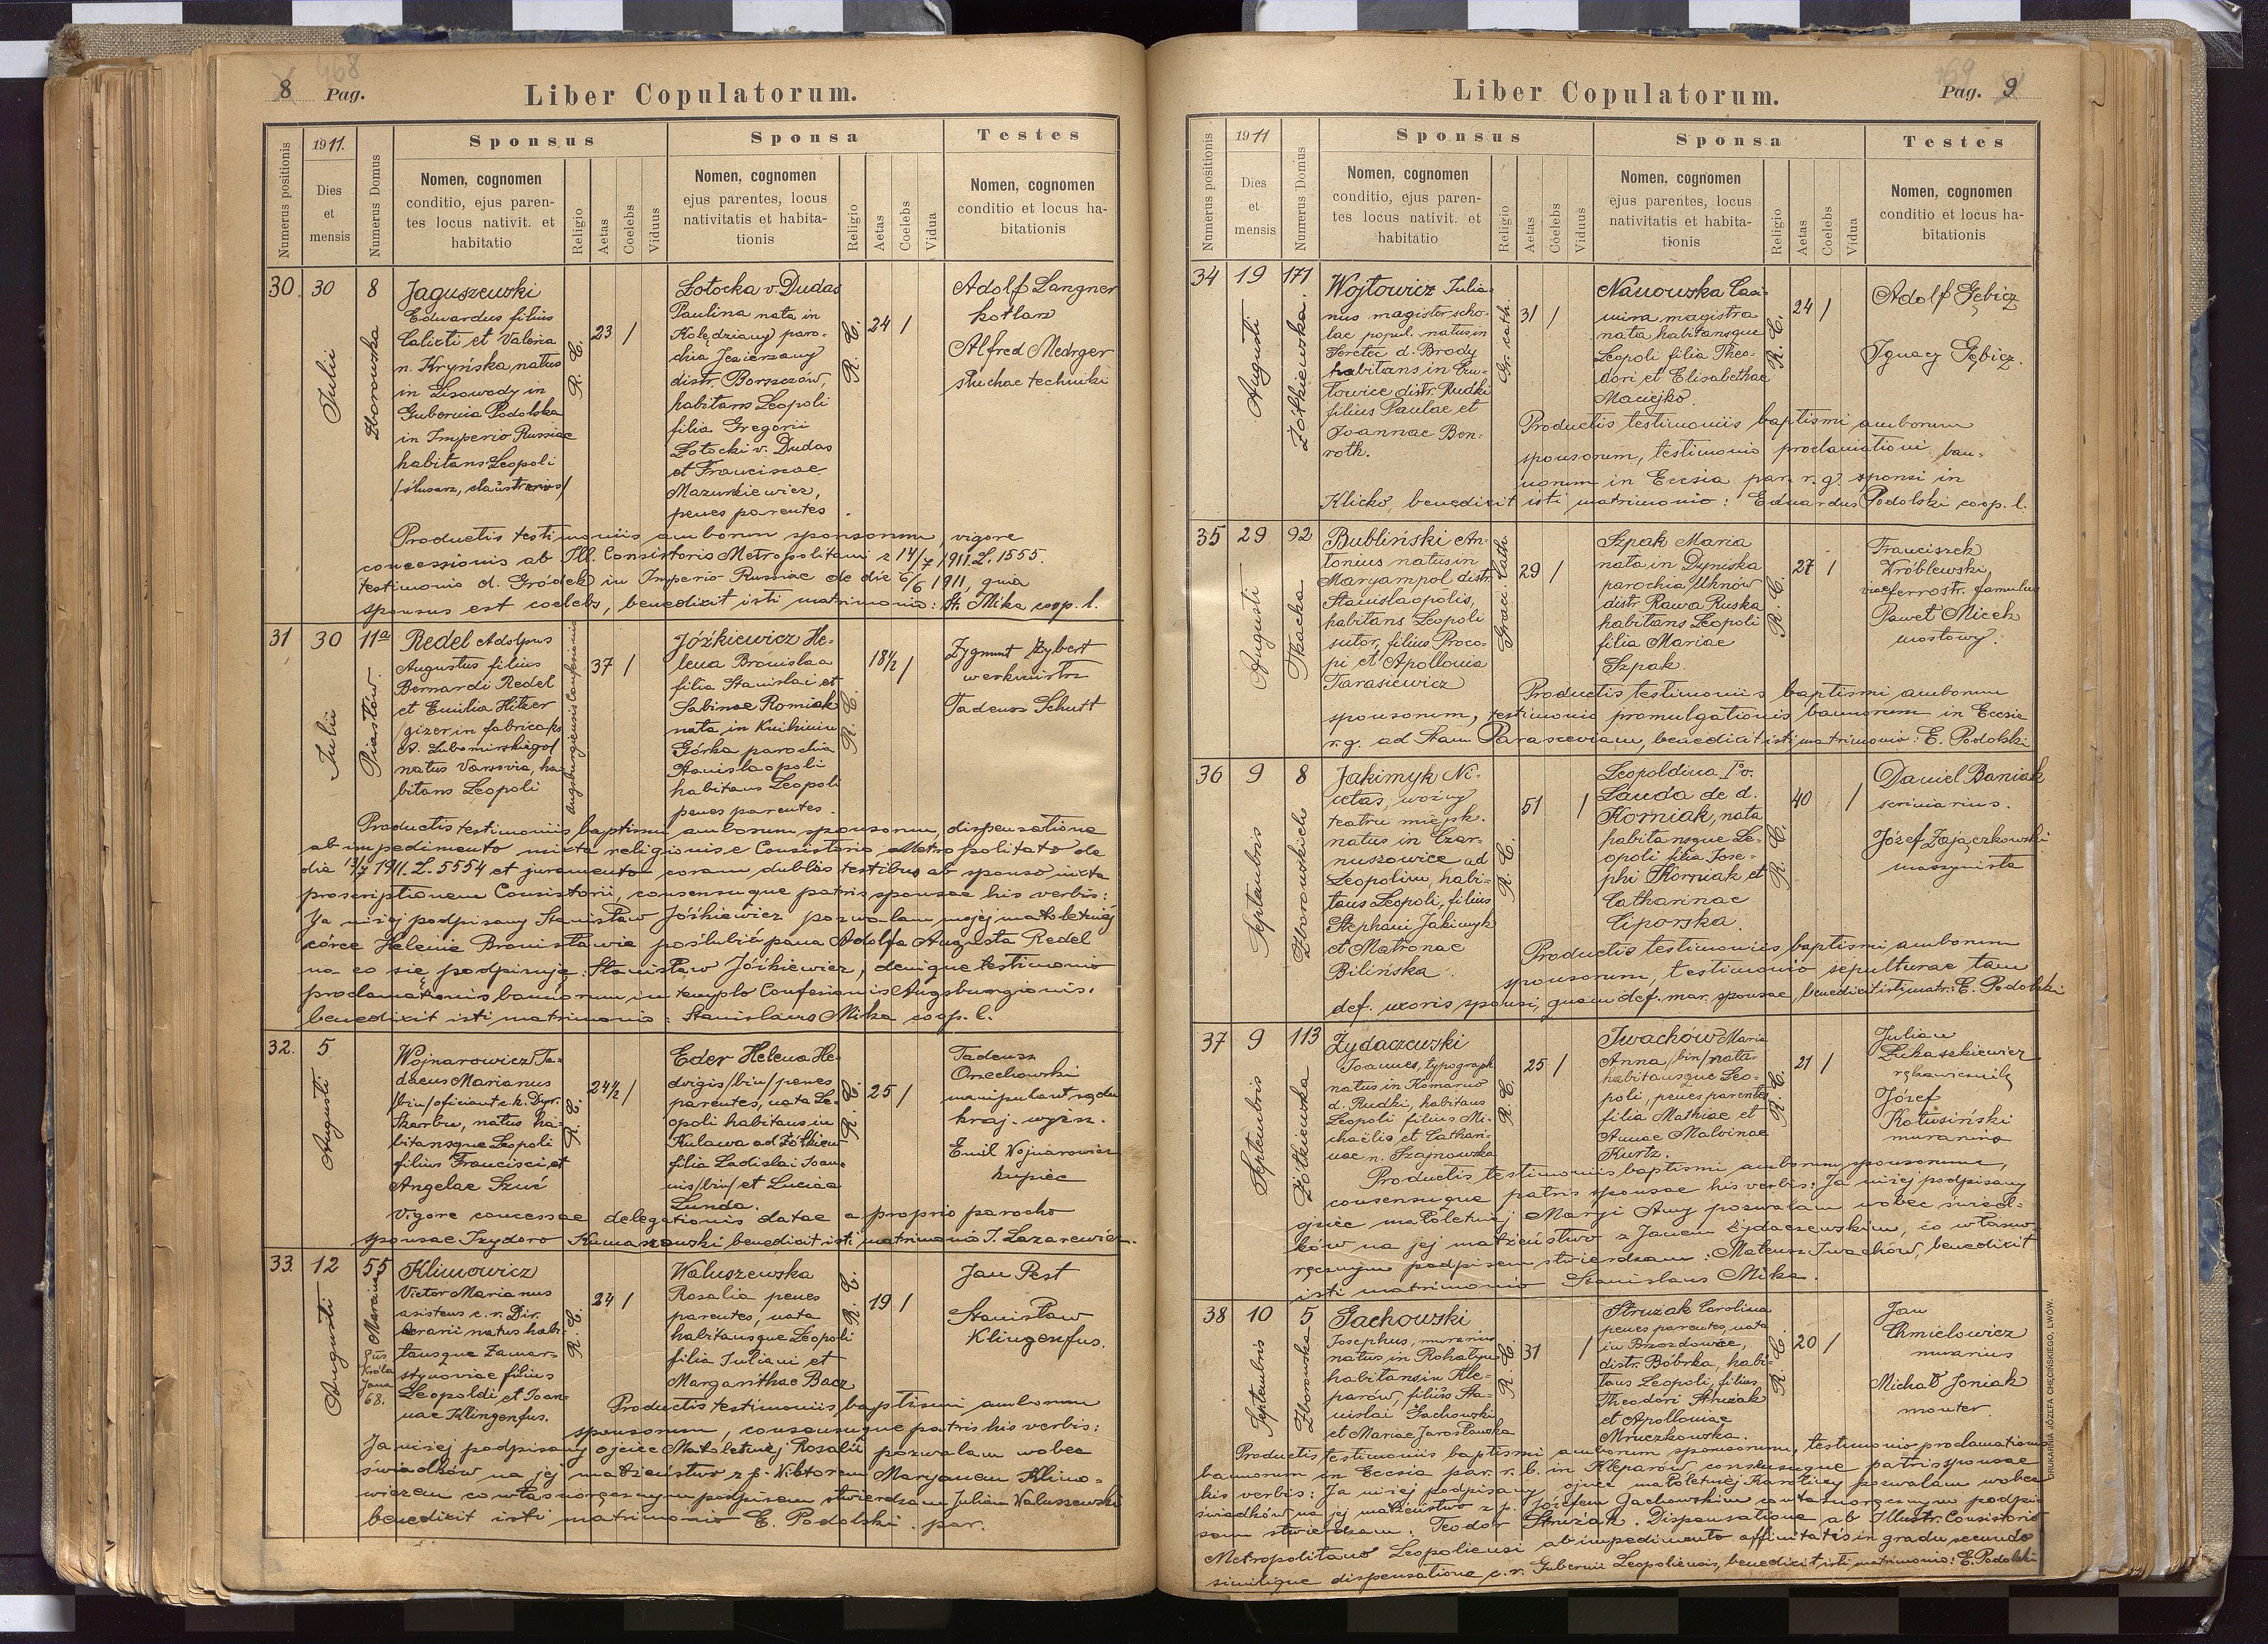 8 Pag.
468
Liber Copulatorum.
Numerus positionis
1911.
Dies et mensis
Numerus Domus
Sponsus
Nomen, cognomen
conditio, ejus paren-
tes locus nativit. et
habitatio
Religio
Aetas
Coelebs
Viduus
Sponsa
Nomen, cognomen
ejus parentes, locus
nativitatis et habita-
tionis
Religio
Aetas
Coelebs
Vidua
Testes
Nomen, cognomen
conditio et locus ha-
bitationis
30
30
Julii
8
Zborowska
Jaguszewski
Eduardus filius
Calixti et Valeria
n. Kryńska natus
in Lisowody in
Gubernia Podolska
in Imperio Russiae
habitans Leopoli
/ślusarz, claustrarius/
R. C.
23 /
Łotocka v Dudas
Paulina nata in
Kolędziany paro-
chia Jezierzany
distr. Borszczów,
habitans Leopoli
filia Gregorii
Łotocki v. Dudas
et Franciscae
Mazurkiewicz,
penes parentes
R. C.
24 /
Adolf Langner
kotlarz
Alfred
słuchac techniki
Productis testimoniis amborum sponsorum, vigore
concessionis ab Ill. Consistorio Metropolitani z 14/7 1911. L. 1555.
testimonio d. Gródek in Imperio Russiae de die 6/6 1911, qua
sponsus est coelebs, benedixit isti matrimonio: St. Mika coop. l.
31
30
Julii
11a
Piastów
Redel Adolpus
Augustus filius
Bernardi Redel
et Emilia Hitzer
/gizer in fabrica
Lubomirskiego/
natus Varsovia, ha-
bitans Leopoli
37 /
Jóźkiewicz He-
lena Bronislaa
filia Stanislai et
Sabinae Romiak
nata in Knihinin
Górka parochia
Stanislaopoli
habitans Leopoli
penes parentes.
R. C.
18½ /
Zygmunt Zybert
werkmistrz
Tadeusz Schutt
Productis testimoniis baptismi amborum sponsorum, dispensatione
ab impedimento mixta religionis e Consistorio Metropolitato de
die 13/7 1911. L. 5554 et juramento coram dublos testibus ab sponso juxta
proscriptionem Consistorii, consensuque patris sponsae his verbis:
Ja niżej podpisany Stanisław Jóżkiewicz pozwalam mojej małoletniéj
córce Helenie Bronisławie poślubić pana Adolfa Augusta Redel
na co się podpisuję: Stanisław Jóżkiewicz, denique testimonio
proclamationis bannorum in templo Confesionis Augsburgionis.
benedixit isti matrimonio: Stanislaus Mika coop. l.
32.
5
Augusti
Wojnarowicz Ta-
daeus Marianus
/bin/ oficiant c. k. Dyr.
Skarbu, natus ha-
bitansque Leopoli
filius Francisci et
Angelae Szwé
R. C.
24½ /
Eder Helena He-
dvigis /bin/ penes
parentes, nata Le-
opoli habitans in
Kulawa ad Żółkiew
filia Ladislai Joan-
nis /bin/ et Luciae
Lunda.
R. C.
25 /
Tadeusz
Orzechowski
manipulant rządu
kraj.
Emil Wojnarowicz
kupiec
Vigore concessae delegationis datae a proprio parocho
sponsae Izydoro benedixit isti matrimonio J. Lazarewicz.
33.
12
Augusti
55
Króla
Jana
68.
Klimowicz
Victor Marianus
asistens c. r. Dir.
aerarii natus habi-
tansque Zamar-
stynoviae filius
Leopoldi et Joan-
nae Klingenfus.
R. C.
24 /
Waluszewska
Rosalia penes
parentes, nata
habitansque Leopoli
filia Juliani et
Margarithae Bacz
R. C.
19 /
Jan Pest
Stanisław
Klingenfus.
Productis testimoniis baptismi amborum
sponsorum, consensuque patris his verbis:
Ja niżej podpisany ojciec Małoletniej Rosalii pozwalam wobec
świadków na jej małżeństwo z p. Wiktorem Maryanem Klimo-
wiczem co własnoręcznym podpisem stwierdzam Julian Waluszewski
benedixit isti matrimonio E. Podolski. par.
469
Pag. 9
Liber Copulatorum.
Numerus positionis
1911
Dies et mensis
Numerus Domus
Sponsus
Nomen, cognomen
conditio, ejus paren-
tes locus nativit. et
habitatio
Religio
Aetas
Coelebs
Viduus
Sponsa
Nomen, cognomen
ejus parentes, locus
nativitatis et habita-
tionis
Religio
Aetas
Coelebs
Vidua
Testes
Nomen, cognomen
conditio et locus ha-
bitationis
34
19
Augusti
171
Żółkiewska.
Wojtowicz Julia-
nus magister scho-
lae popul. natus in
Seretec d. Brody
habitans in Chu-
towice distr. Rudki
filius Paulae et
Joannae Bon-
roth.
Gr. cath.
31 /
Nanowska Casi-
mira magistra
nata habitansque
Leopoli filia Theo-
dori et Elisabethae
Maciejko.
R. C.
24 /
Adolf Gębicz
Ignacy Gębicz.
Productis testimoniis baptismi amborum
sponsorum, testimonio proclamationi ban-
norum in Eccsia par. r. g. sponsi in
Klicko, benedixit isti matrimonio: Eduardus Podolski coop. l.
35
29
Augusti
92
Tkacka
Bubliński An-
tonius natus in
Maryampol distr.
Stanislaopolis,
habitans Leopoli
sutor, filius Proco-
pi et Apollonia
Tarasiewicz
Graeci Cath.
29 /
Szpak Maria
nata in Dyniska
parochia Uhnów
distr. Rawa Ruska
habitans Leopoli
filia Mariae
Szpak.
R. C.
27 /
Franciszek
Wróblewski,
viae ferrostr. famulus
Paweł Micek
mostowy.
Productis testimoniis baptismi amborum
sponsorum, testimonio promulgationis bannorum in Eccsia
r. g. ad Stam Parasceviam, benedixit isti matrimonio: E. Podolski
36
9
Septembris
8
Zborowskich
Jakimyk Ni-
cetas, woźny
teatru miejsk.
natus in Czar-
nuszowice ad
Leopolim, habi-
tans Leopoli, filius
Stephani Jakimyk
et Matronae
Bilińska.
R. C.
51 /
Leopoldina I°v.
Lauda de d.
Korniak, nata
habitansque Le-
opoli filia Jose-
phi Korniak et
Catharinae
Ciporska.
R. C.
40 /
Daniel Baniak
scriniarius.
Józef Zajączkowski
maszynista
Productis testimoniis baptismi amborum
sponsorum, testimonio sepulturae tam
def. uxoris sponsi, quam def. mar. sponsae, benedixit isti matr.: E. Podolski
37
9
Septembris
113
Żółkiewska
Żydaczewski
Joannes, typograph
natus in Komarno
d. Rudki, habitans
Leopoli filius Mi-
chaëlis et Cathari-
nae n. Szajnowska
R. C.
25 /
Iwachów Maria
Anna /bin/ nata
habitansque Leo-
poli, penes parentes
filia Mathiae et
Annae Malvinae
Kurtz.
R. C.
21 /
Julian
Łukaszkiewicz
rękawicznik
Józef
Kotusiński
murarius
Productis testimoniis baptismi amborum sponsorum,
consensuque patris sponsae his verbis: Ja niżej podpisany
ojciec małoletniej Maryi Anny pozwalam wobec świad-
ków na jej małżeństwo z Janem Żydaczewskim, co własno-
ręcznym podpisem stwierdzam: Mateusz Iwachów, benedixit
isti matrimonio Stanislaus Mika.
38
10
Septembris
5
Zborowska
Gachowski
Josephus, murarius
natus in Rohatyn
habitans in Kle-
parów, filius Sta-
nislai Gachowski
et Mariae Jarosławska
R. C.
31 /
Struzak Carolina
penes parentes, nata
in Brzozdowice,
distr. Bóbrka, habi-
tans Leopoli, filius
Theodori Struzak
et Apolloniae
Mruczkowska.
R. C.
20 /
Jan
Chmielowicz
murarius
Michał Joniak
monter
Productis testimoniis baptismi amborum sponsorum, testimonio proclamationis
bannorum in Eccsia par. r. l. in Kleparów, consensuque patris sponsae
his verbis: Ja niżej podpisany ojciec małoletniéj Karoliny pozwalam wobec
świadków na jej małżeństwo z p. Józefem Gachowskim co własnoręcznym podpi-
sem stwierdzam: Teodor Struzak. Dispensatione ab Illustr. Consistorio
Metropolitano Leopoliensi ab impedimento affinitatis in gradu secundo
similique dispensatione c. r. Gubernii Leopoliensis, benedixit isti matrimonio: E. Podolski
DRUKARNIA JÓZEFA CHĘCIŃSKIEGO, LWÓW.